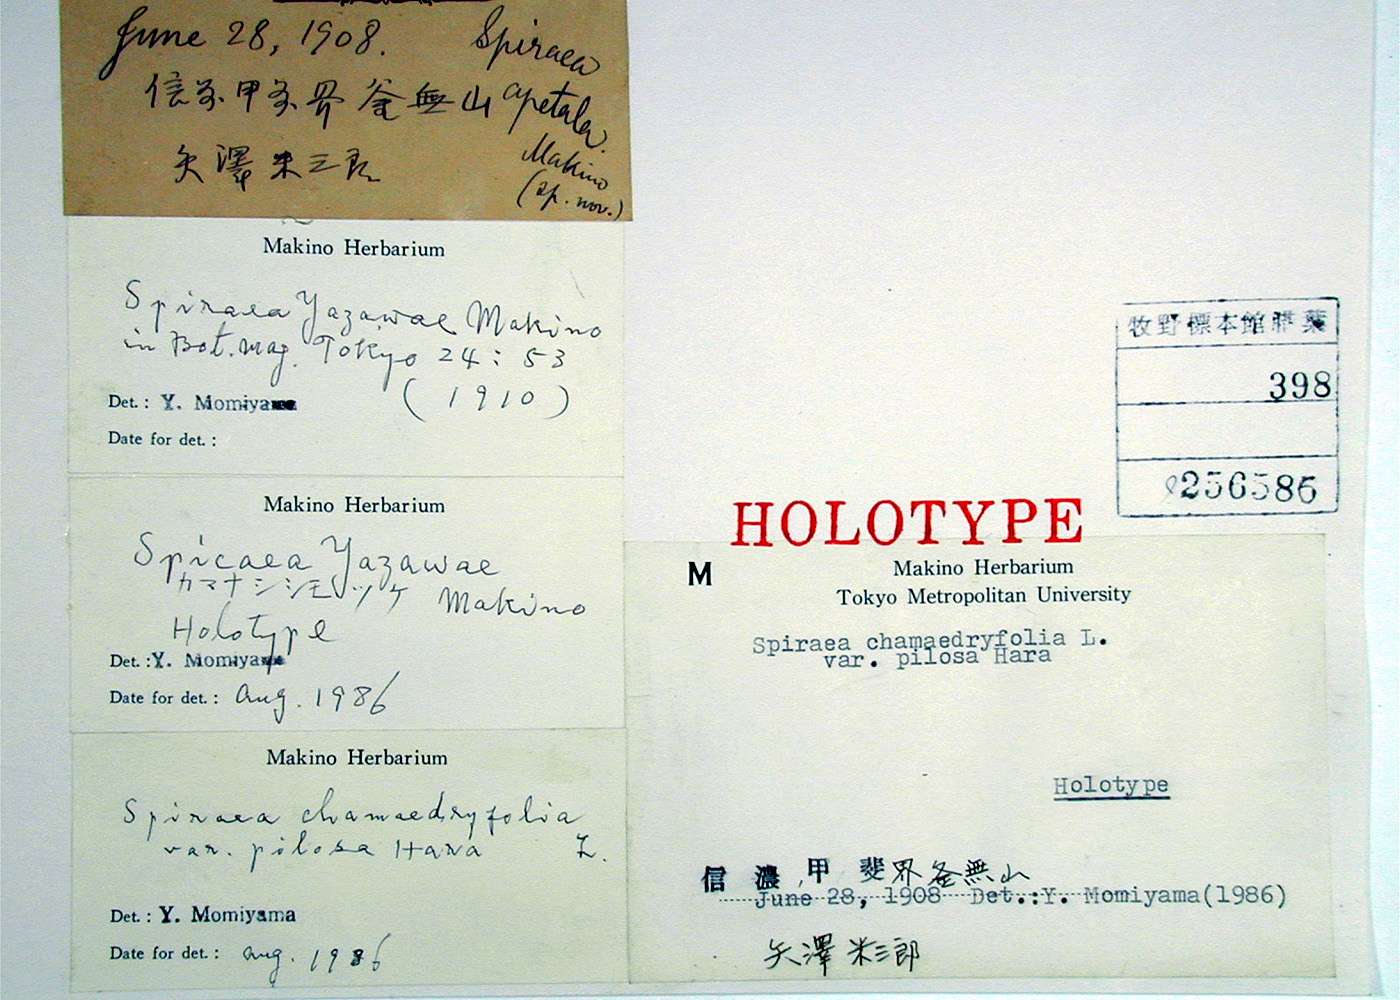 June 28, 1908.
信州甲州界釜無山
矢澤米三郎
Spiraea
apetala.
Makino
(sp. nov.)
Makino Herbarium
Spiraea Yazawae Makino
in Bot. Mag. Tokyo 24 : 53
(1910)
Det. : Y. Momiyama
Date for det. :
Makino Herbarium
Spiraea Yazawae
カマナシシモツケ Makino
Holotype
Det. : Y. Momiyama
Date for det. : Aug. 1986
Makino Herbarium
Spiraea chamaedryfolia
var. pilosa Hara L.
Det. : Y. Momiyama
Date for det. : Aug. 1986
牧野標本館腊葉
398
256586
HOLOTYPE
M
Makino Herbarium
Tokyo Metropolitan University
Spiraea chamaedryfolia L.
var. pilosa Hara
Holotype
信濃,甲斐界釜無山
June 28, 1908 Det.:Y. Momiyama(1986)
矢澤米三郎